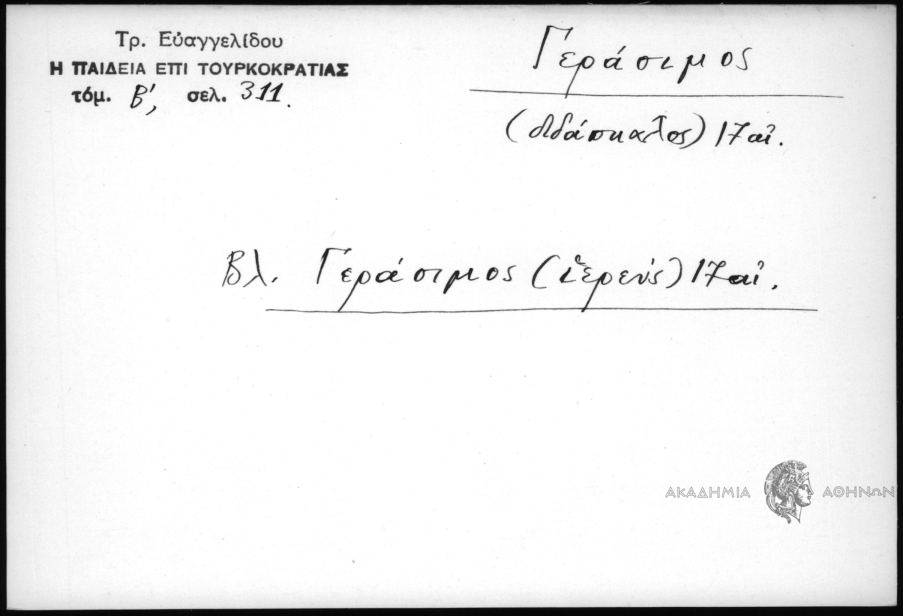 Τρ. Εὐαγγελίδου
Η ΠΑΙΔΕΙΑ ΕΠΙ ΤΟΥΡΚΟΚΡΑΤΙΑΣ
τόμ. Β', σελ. 311.
Γεράσιμος
(διδάσκαλος) 17 αἰ.
Βλ. Γεράσιμος (ἱερεύς) 17 αἰ.
ΑΚΑΔΗΜΙΑ ΑΘΗΝΩΝ